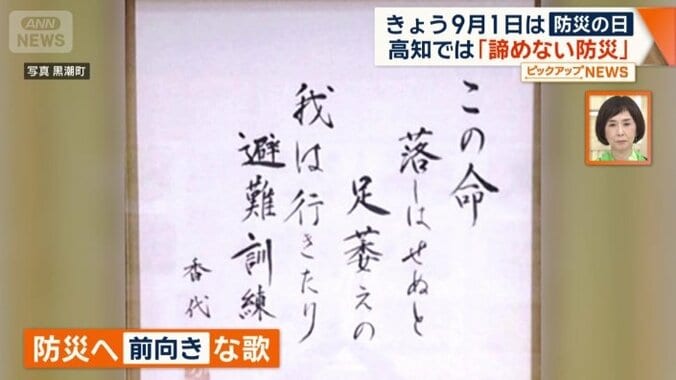 ANN
NEWS
写真 黒潮町
きょう9月1日は 防災の日
高知では「諦めない防災」
ピックアップNEWS
この命
落しはせぬと
足萎えの
我は行きたり
避難訓練
香代
防災へ 前向き な歌